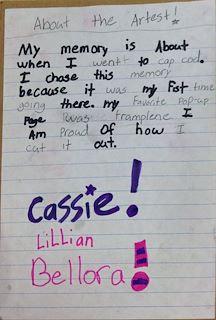 About the Artest!
My memory is About
when I went to cap cod.
I chose this memory
because it was my Fst time
going there. my Favorite Pop-up
Page was Framplene I
Am Proud Of how I
cut it out.
Cassie!
LiLLian
Bellora!